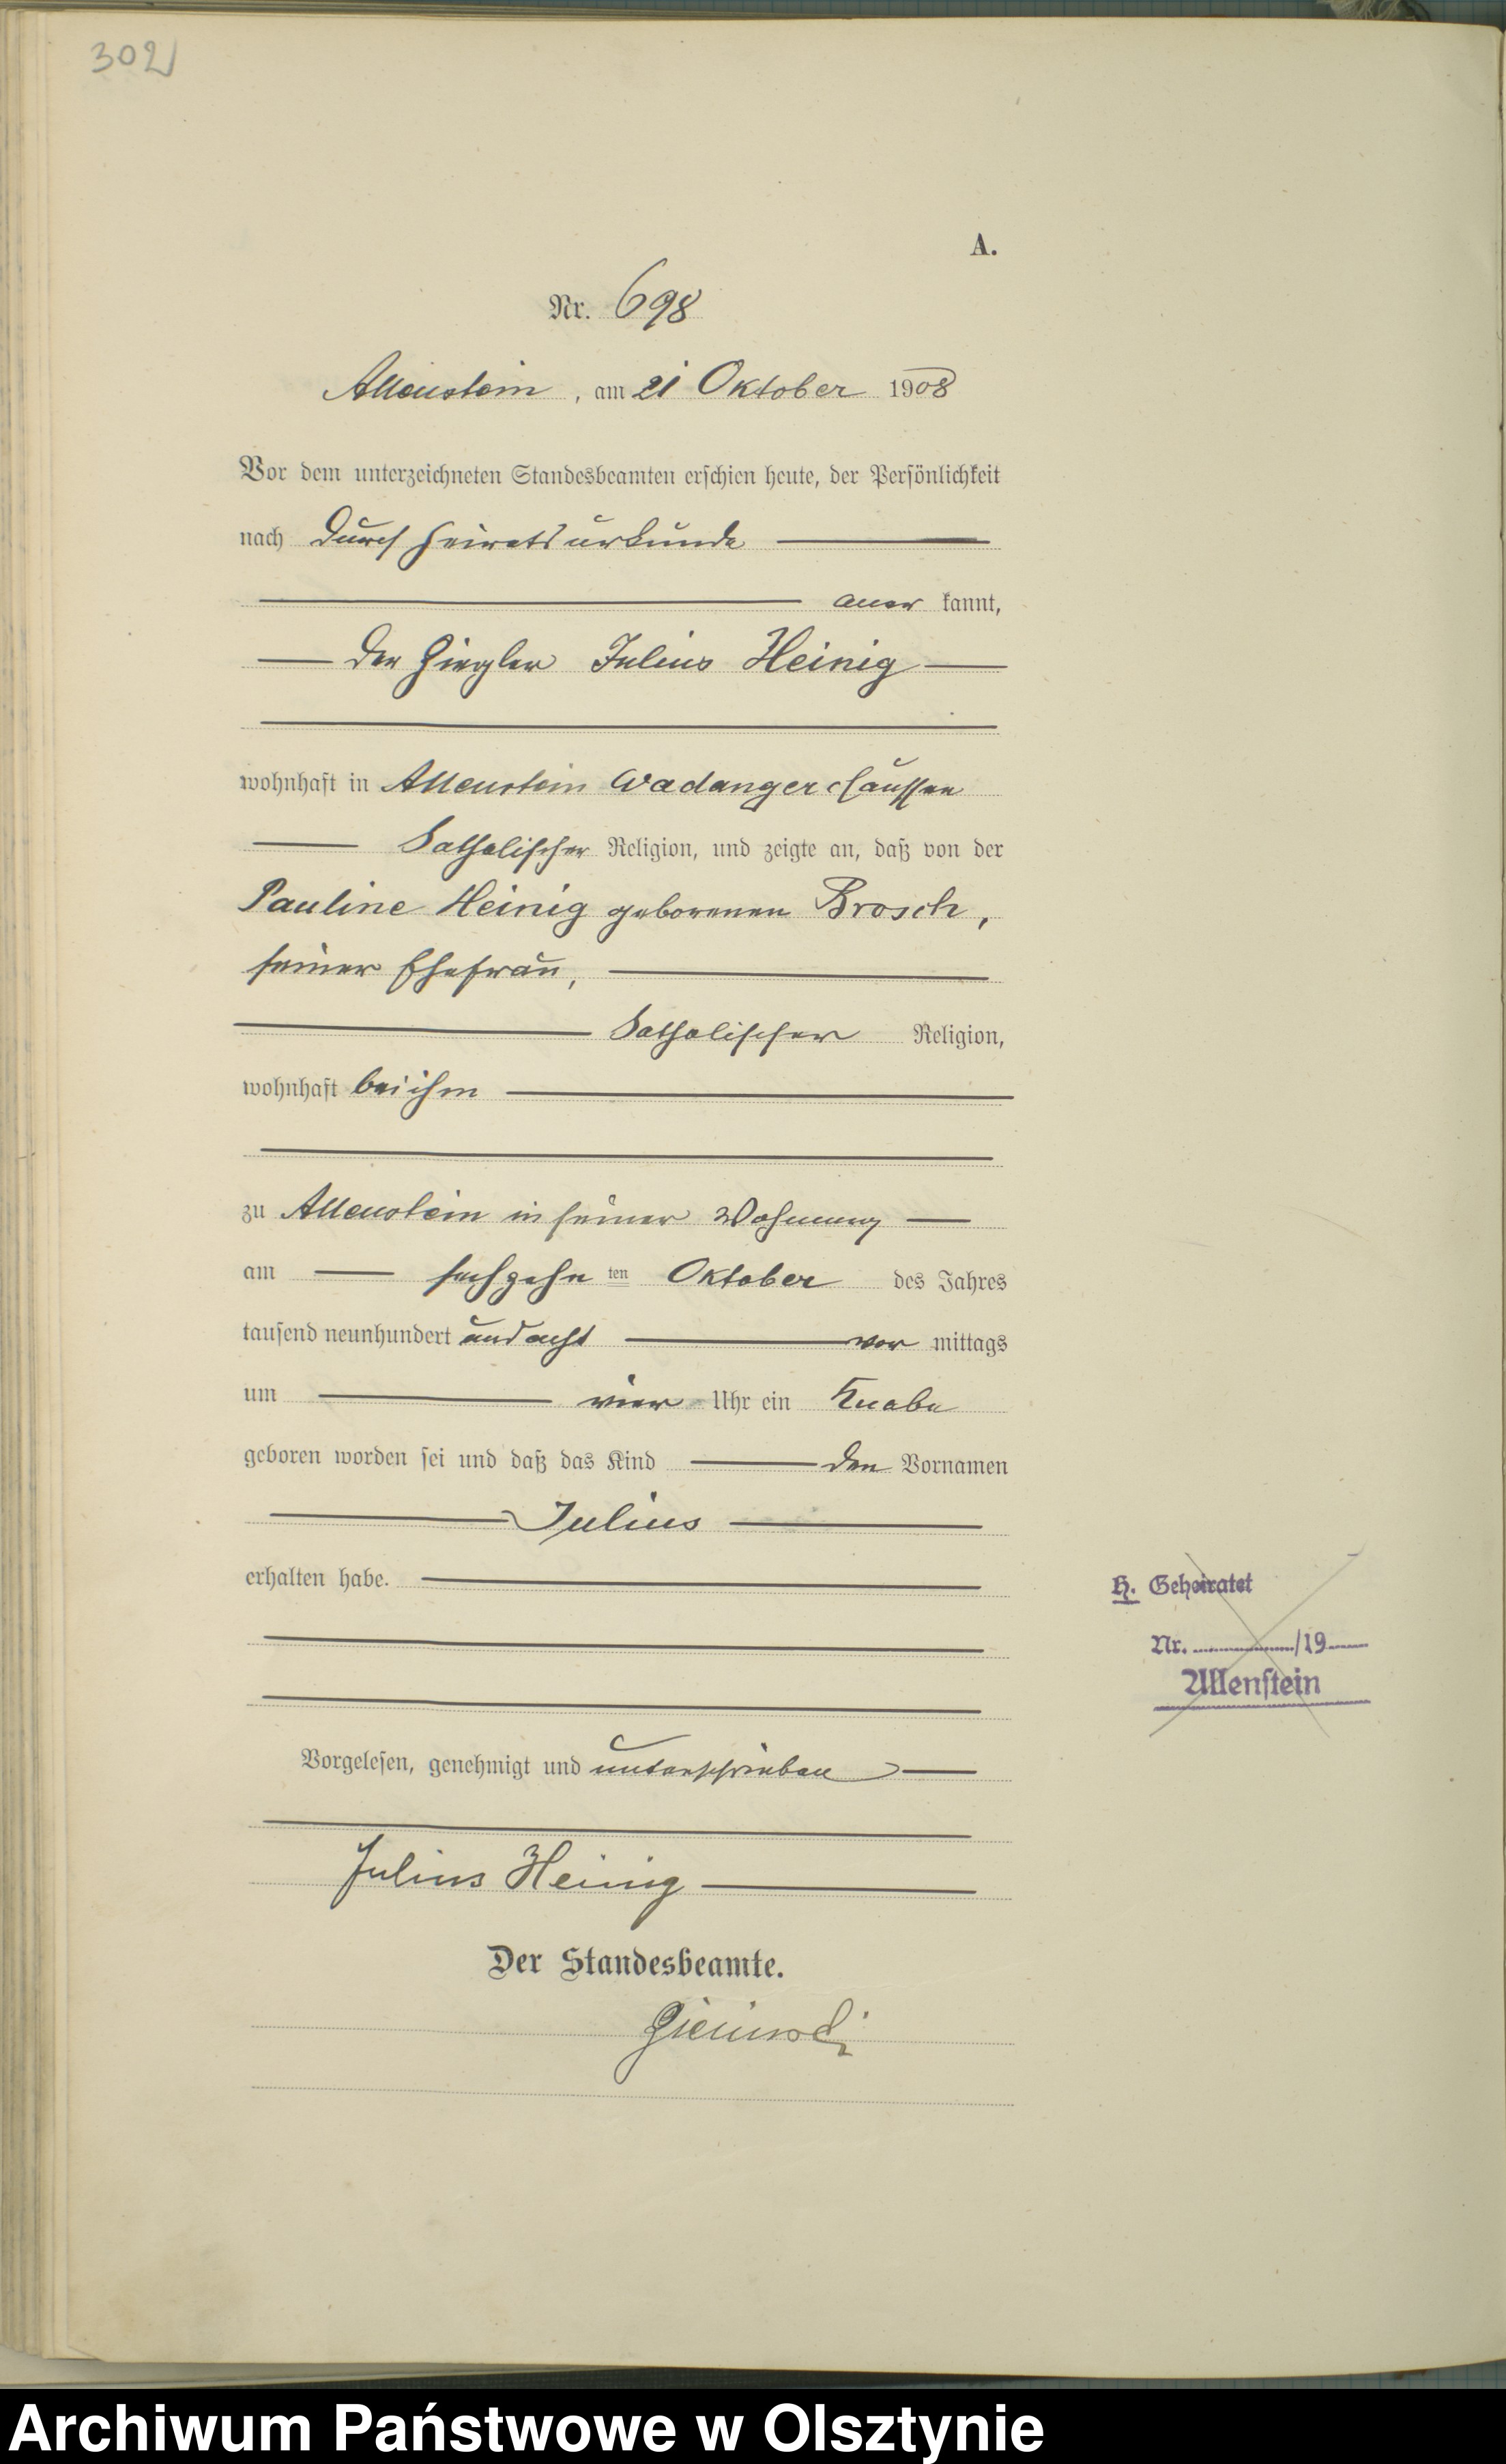 302
A.
Nr. 698
Allenstein, am 21 Oktober 1908
Vor dem unterzeichneten Standesbeamten erschien heute, der Persönlichkeit
nach durch Heiratsurkunde
aner kannt,
der Ziegler Julius Heinig
wohnhaft in Allenstein Wadanger Chaussee
katholischer Religion, und zeigte an, daß von der
Pauline Heinig geborenen Brosch,
seiner Ehefrau,
katholischer Religion,
wohnhaft bei ihm
zu Allenstein in seiner Wohnung
am sechzehn ten Oktober des Jahres
tausend neunhundert und acht vor mittags
um vier Uhr ein Knabe
geboren worden sei und daß das Kind den Vornamen
Julius
erhalten habe.
H. Geheiratet
Nr. /19
Allenstein
Vorgelesen, genehmigt und unterschrieben
Julius Heinig
Der Standesbeamte.
Archiwum Państwowe w Olsztynie